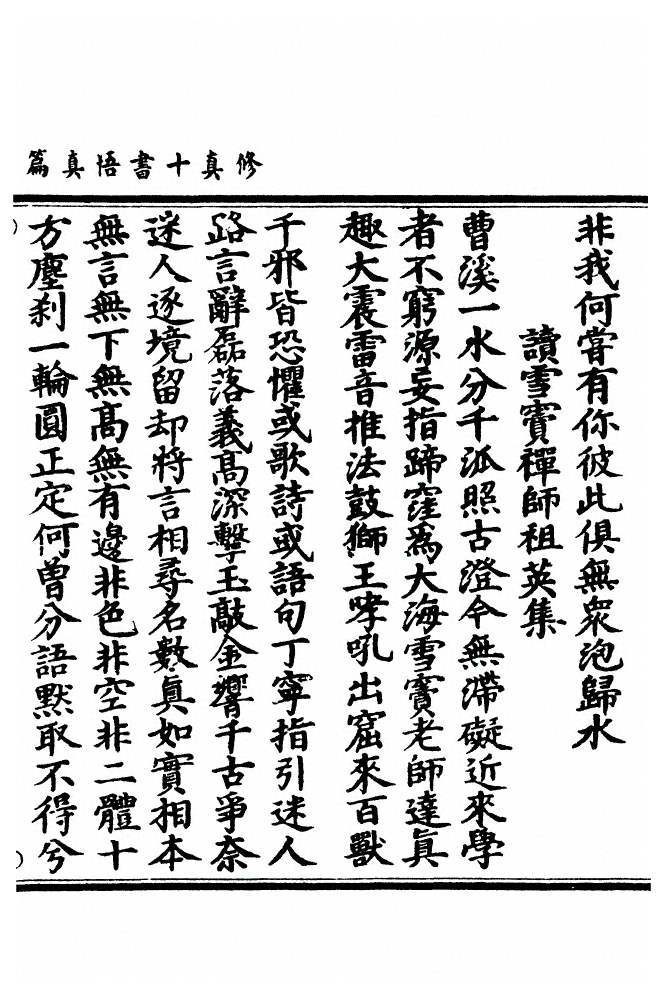 修真十書悟真篇
非我何嘗有你彼此俱無眾泡歸水
讀雪竇禪師祖英集
曹溪一水分千派照古澄今無滯礙近來學
者不窮源妄指蹄窪為大海雪竇老師達真
趣大震雷音推法鼓獅王哮吼出窟來百獸
千邪皆恐懼或歌詩或語句丁寧指引迷人
路言辭磊落義高深擊玉敲金響千古爭奈
迷人逐境留却將言相尋名數真如實相本
無言無下無高無有邊非色非空非二體十
方塵剎一輪圓正定何曾分語默取不得兮